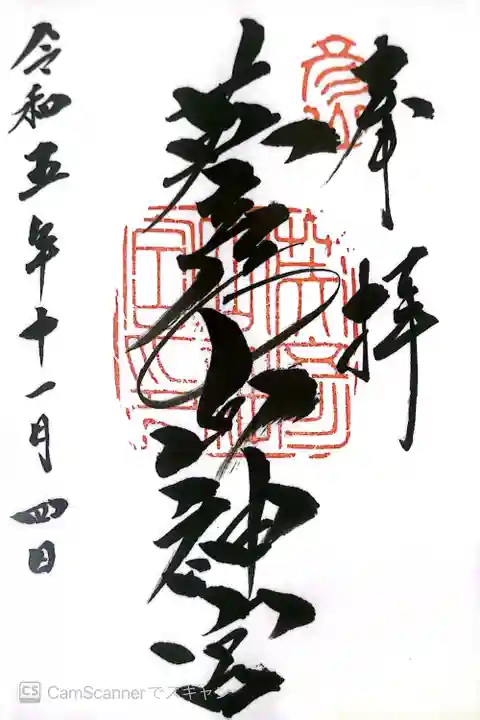 奉拝
英彦山神宮
令和五年十一月四日
CS CamScannerでスキャ